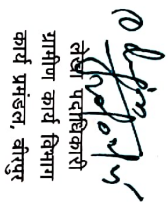 लेखा पदाधिकारी
ग्रामीण कार्य विभाग
कार्य प्रमंडल, बीरपुर